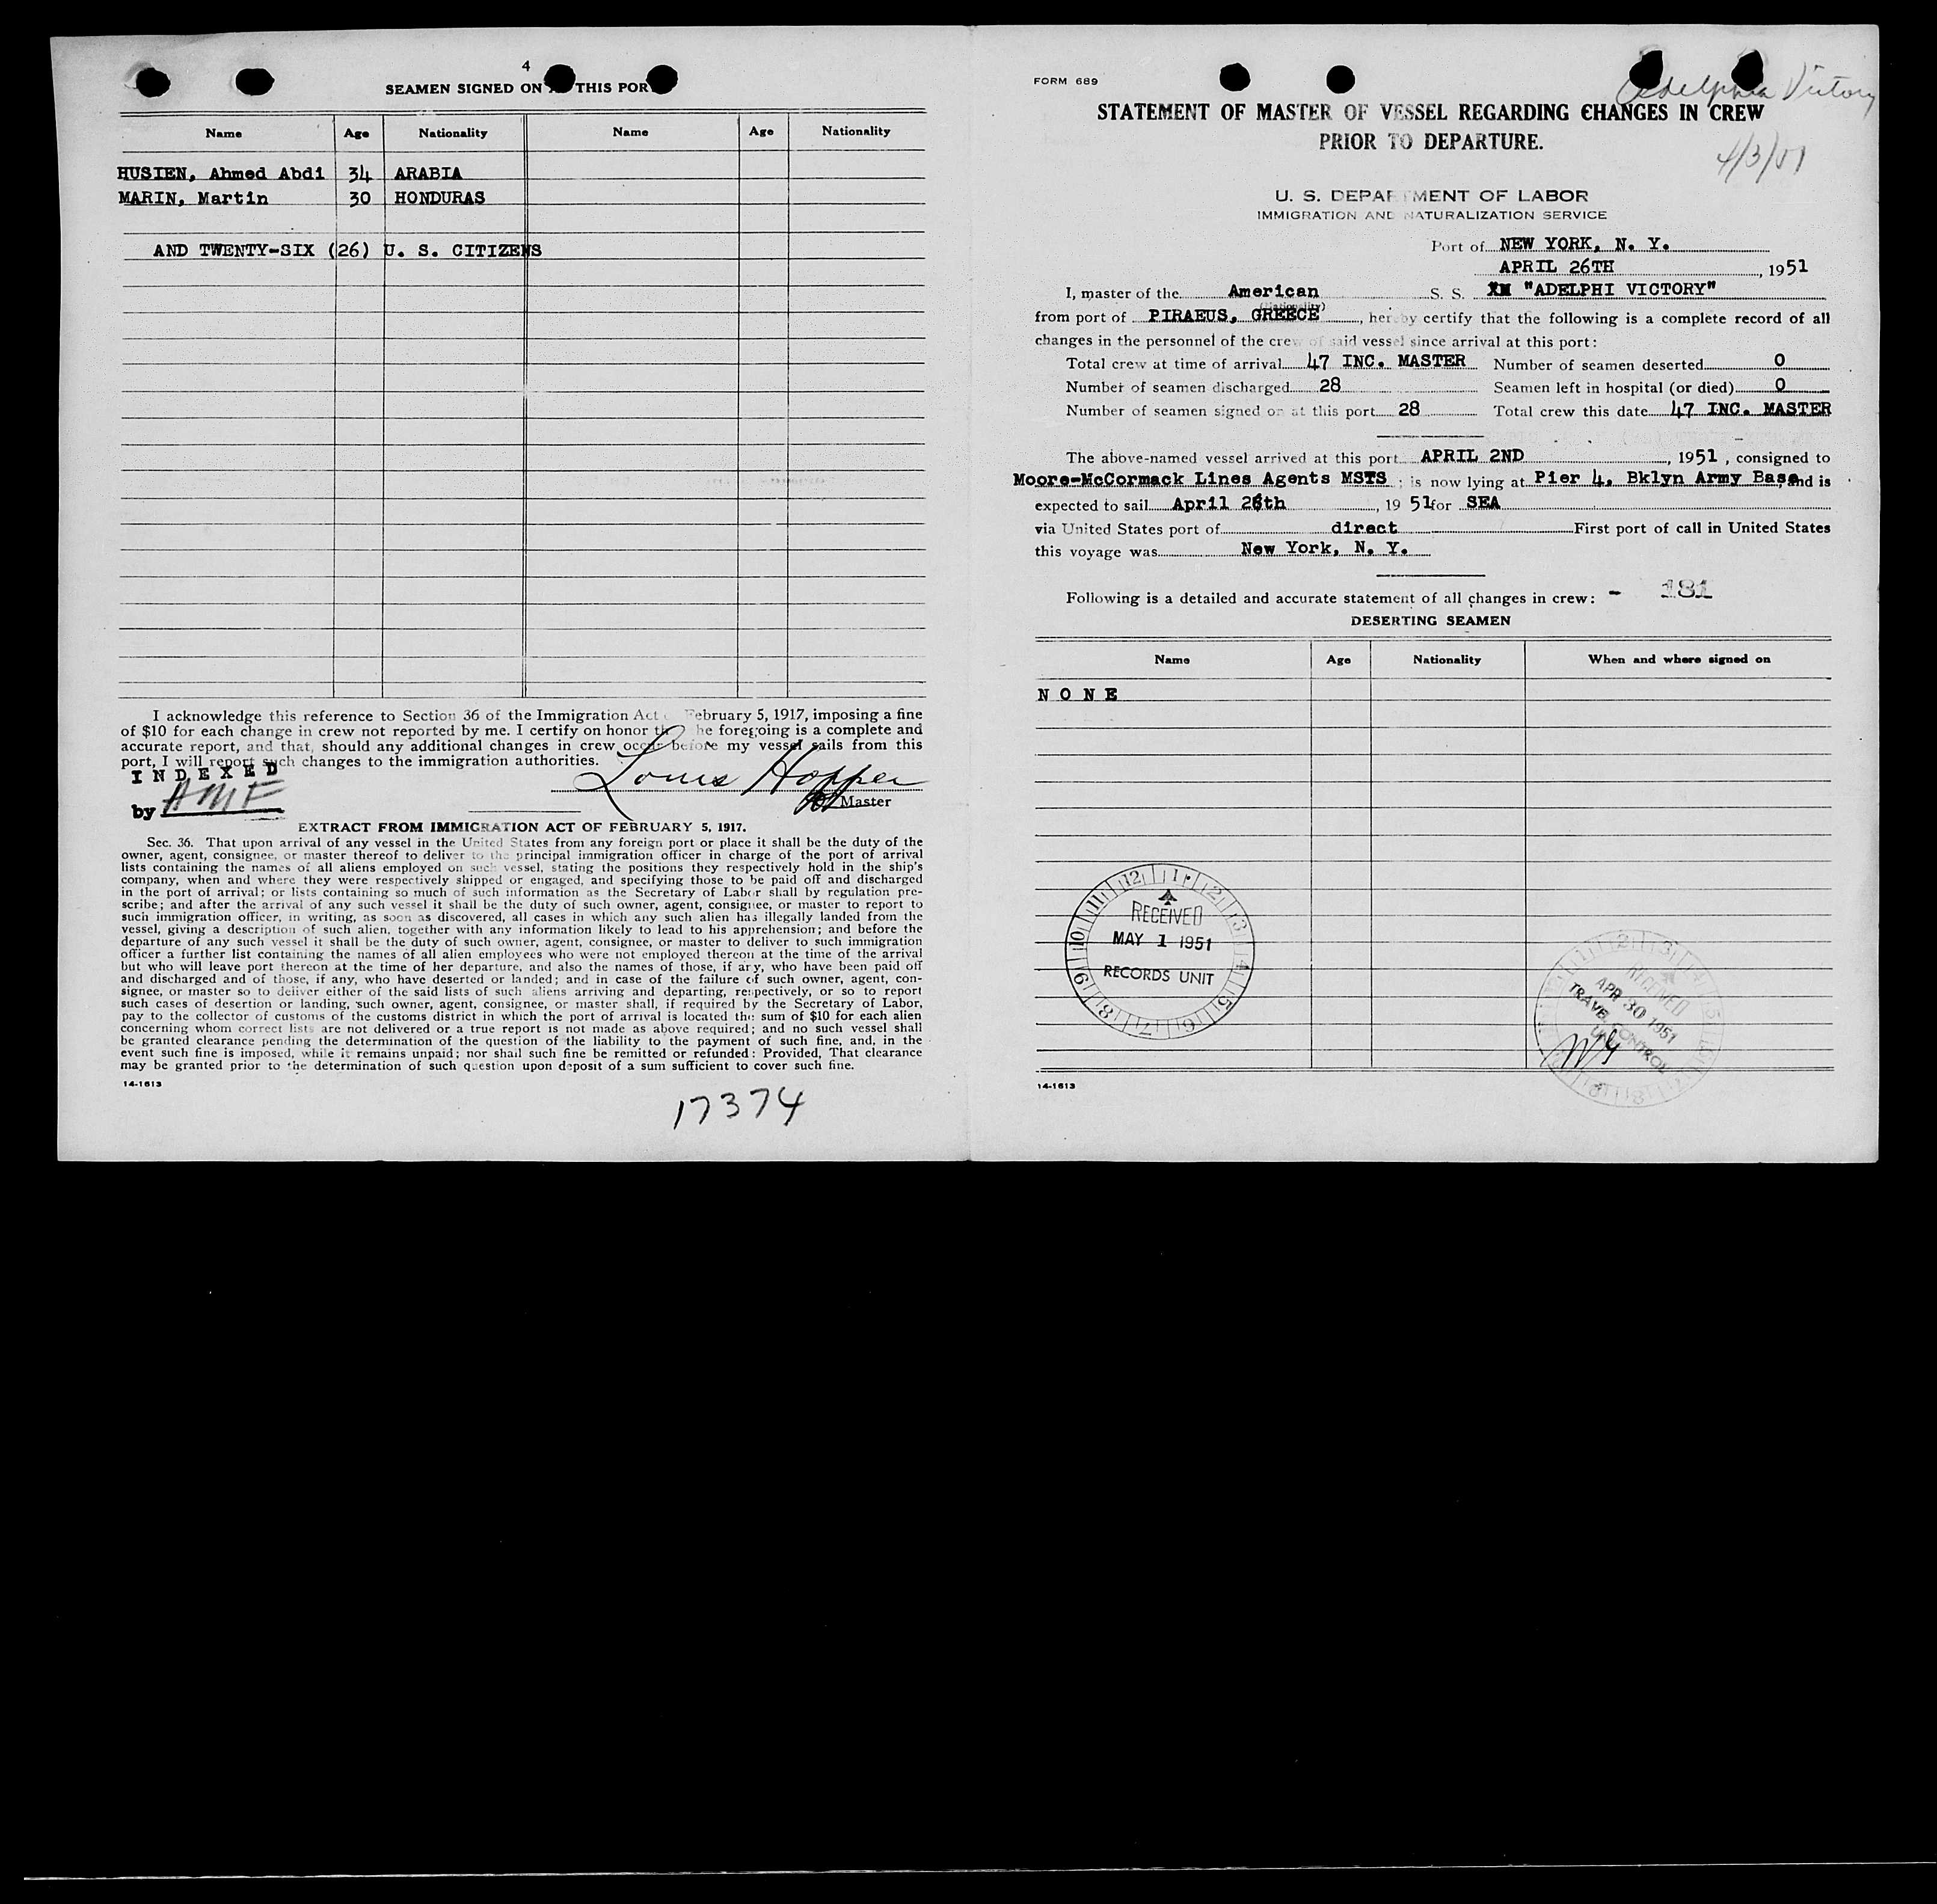 4
SEAMEN SIGNED ON THIS POR
Name Age Nationality Name Age Nationality
HUSIEN, Ahmed Abdi 34 ARABIA
MARIN, Martin 30 HONDURAS
AND TWENTY-SIX (26) U. S. CITIZENS
I acknowledge this reference to Section 36 of the Immigration Act February 5, 1917, imposing a fine
of $10 for each change in crew not reported by me. I certify on honor the foregoing is a complete and
accurate report, and that, should any additional changes in crew occur before my vessel sails from this
port, I will report such changes to the immigration authorities.
INDEXED
by AMF
Louis Hopper
Master
EXTRACT FROM IMMIGRATION ACT OF FEBRUARY 5, 1917.
Sec. 36. That upon arrival of any vessel in the United States from any foreign port or place it shall be the duty of the
owner, agent, consignee, or master thereof to deliver to the principal immigration officer in charge of the port of arrival
lists containing the names of all aliens employed on such vessel, stating the positions they respectively hold in the ship's
company, when and where they were respectively shipped or engaged, and specifying those to be paid off and discharged
in the port of arrival; or lists containing so much of such information as the Secretary of Labor shall by regulation pre-
scribe; and after the arrival of any such vessel it shall be the duty of such owner, agent, consignee, or master to report to
such immigration officer, in writing, as soon as discovered, all cases in which any such alien has illegally landed from the
vessel, giving a description of such alien, together with any information likely to lead to his apprehension; and before the
departure of any such vessel it shall be the duty of such owner, agent, consignee, or master to deliver to such immigration
officer a further list containing the names of all alien employees who were not employed thereon at the time of the arrival
but who will leave port thereon at the time of her departure, and also the names of those, if any, who have been paid off
and discharged and of those, if any, who have deserted or landed; and in case of the failure of such owner, agent, con-
signee, or master so to deliver either of the said lists of such aliens arriving and departing, respectively, or so to report
such cases of desertion or landing, such owner, agent, consignee, or master shall, if required by the Secretary of Labor,
pay to the collector of customs of the customs district in which the port of arrival is located the sum of $10 for each alien
concerning whom correct lists are not delivered or a true report is not made as above required; and no such vessel shall
be granted clearance pending the determination of the question of the liability to the payment of such fine, and, in the
event such fine is imposed, while it remains unpaid; nor shall such fine be remitted or refunded: Provided, That clearance
may be granted prior to the determination of such question upon deposit of a sum sufficient to cover such fine.
14-1613
17374
FORM 689
Adelphia Victory
STATEMENT OF MASTER OF VESSEL REGARDING CHANGES IN CREW
PRIOR TO DEPARTURE.
4/3/51
U. S. DEPARTMENT OF LABOR
IMMIGRATION AND NATURALIZATION SERVICE
Port of NEW YORK, N. Y.
APRIL 26TH, 1951
I, master of the American S. S. "ADELPHI VICTORY"
(Nationality)
from port of PIRAEUS, GREECE, hereby certify that the following is a complete record of all
changes in the personnel of the crew of said vessel since arrival at this port:
Total crew at time of arrival 47 INC. MASTER Number of seamen deserted 0
Number of seamen discharged 28 Seamen left in hospital (or died) 0
Number of seamen signed on at this port 28 Total crew this date 47 INC. MASTER
The above-named vessel arrived at this port APRIL 2ND, 1951, consigned to
Moore-McCormack Lines Agents MSTS; is now lying at Pier 4, Bklyn Army Base, and is
expected to sail April 26th, 1951 for SEA
via United States port of direct First port of call in United States
this voyage was New York, N. Y.
Following is a detailed and accurate statement of all changes in crew: - 181
DESERTING SEAMEN
Name Age Nationality When and where signed on
NONE
12 1 2 3 4 5 6 7 8 9 10 11
RECEIVED
MAY 1 1951
RECORDS UNIT
RECEIVED
APR 30 1951
TRAVEL CONTROL
UNIT
14-1613